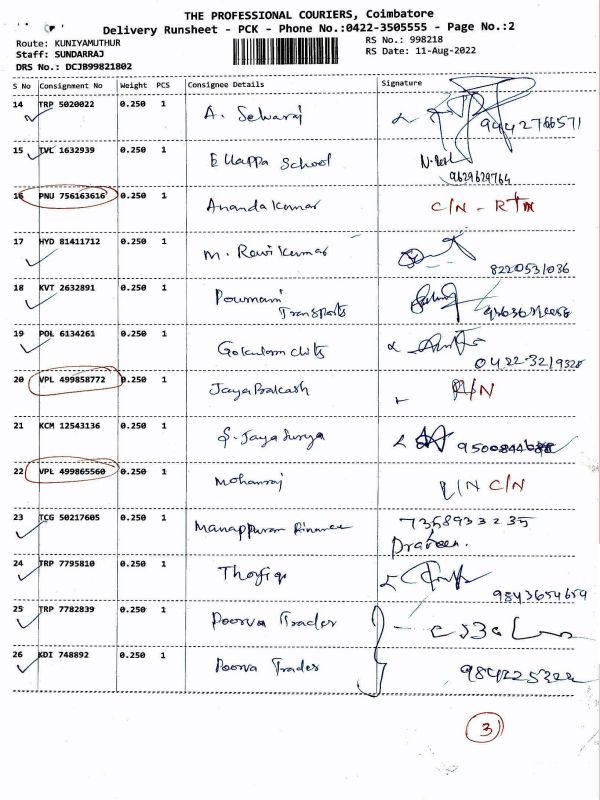 THE PROFESSIONAL COURIERS, Coimbatore
Delivery Runsheet - PCK - Phone No.:0422-3505555 - Page No.:2
Route: KUNIYAMUTHUR
Staff: SUNDARRAJ
DRS No.: DCJB99821802
RS No.: 998218
RS Date: 11-Aug-2022
S No Consignment No Weight PCS Consignee Details Signature
14 TRP 5020022 0.250 1 A. Selvaraj
15 TVL 1632939 0.250 1 Ellappa School 9629629764
16 PNU 756163616 0.250 1 Ananda Kumar C/N - RTN
17 HYD 81411712 0.250 1 M. Ravi Kumar 8220531036
18 KVT 2632891 0.250 1 Pournami
Transports
19 POL 6134261 0.250 1 Gokulam chits 04223219328
20 VPL 499858772 0.250 1 JayaPrakash
21 KCM 12543136 0.250 1 S. Jaya Surya
22 VPL 499865560 0.250 1 Mohanraj C/N
23 TCG 50217605 0.250 1 Manappuram Finance 7358933235
Praveen.
24 TRP 7795810 0.250 1 9843654659
25 TRP 7782839 0.250 1 Poorva Trader
26 KDI 748892 0.250 1 Poorva Trader
3